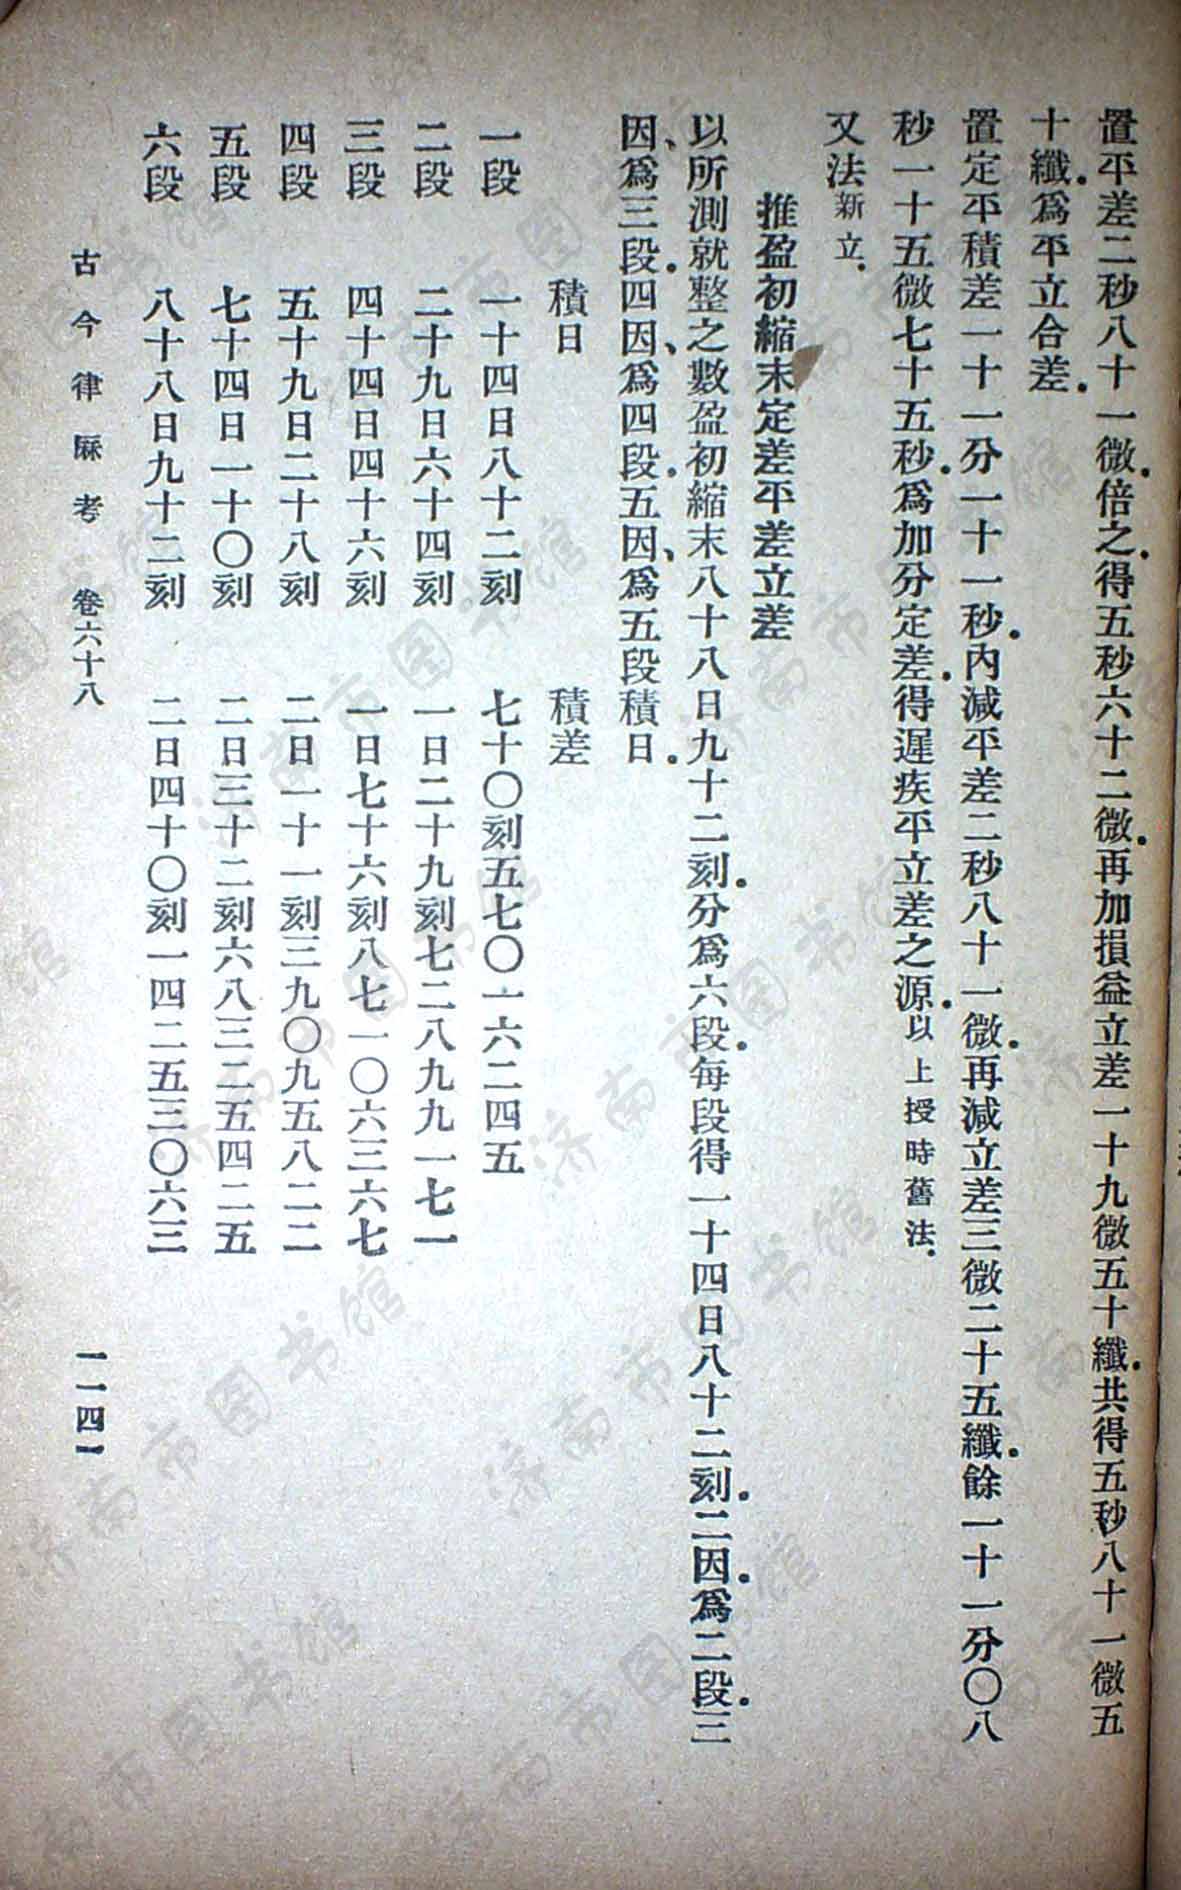 置平差二秒八十一微．倍之．得五秒六十二微．再加損益立差一十九微五十纖．共得五秒八十一微五
十纖．爲平立合差．
置定平積差一十一分一十一秒．內減平差二秒八十一微．再減立差三微二十五纖．餘一十一分〇八
秒一十五微七十五秒．爲加分定差．得遲疾平立差之源．以上授時舊法．
又法新立．
推盈初縮末定差平差立差
以所測就整之數盈初縮末八十八日九十二刻．分爲六段．每段得一十四日八十二刻．二因．爲二段．三
因、爲三段．四因、爲四段．五因、爲五段積日．
積日　積差
一段　一十四日八十二刻　七十〇刻五七〇一六二四五
二段　二十九日六十四刻　一日二十九刻七二八九九一七一
三段　四十四日四十六刻　一日七十六刻八七一〇六三六七
四段　五十九日二十八刻　二日一十一刻三九〇九五八二二
五段　七十四日一十〇刻　二日三十二刻六八三二五四二五
六段　八十八日九十二刻　二日四十〇刻一四二五三〇六三
古今律厤考　卷六十八　一一四一